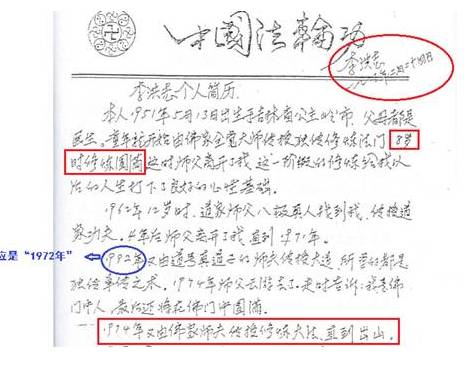 中國法輪功
李洪志
李洪志个人简历.
本人1951年5月13日出生于吉林省公主岭市,父母都是
医生。童年起开始由佛家全觉大师传授独传修炼法门,8岁
时修炼圆满 这时师父离开了我 这一阶段的修炼给我以
后的人生打下了良好的心性基础。
1962年12岁时,道家师父八极真人找到我,传授道
家功夫。4年后师父离开了我,直到1971年。
应是“1972年”
1992年又由道号真道子的师夫传授大道,所学的都是
独传单传之术。1974年师父云游去了,走时告诉:我是佛
门中人,最后还将在佛门中圆满。
1974年又由佛教师夫传授修炼大法,直到出山。